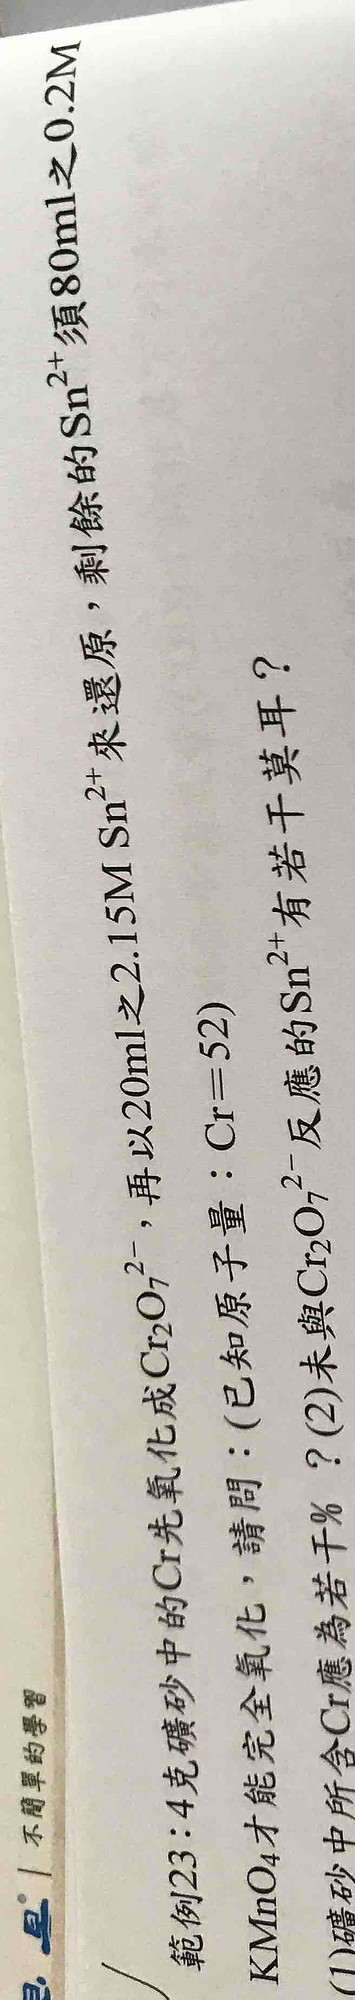 旦 | 不簡單的學習
範例23：4克礦砂中的Cr先氧化成Cr₂O₇²⁻，再以20ml之2.15M Sn²⁺來還原，剩餘的Sn²⁺須80ml之0.2M
KMnO₄才能完全氧化，請問：(已知原子量：Cr=52)
(1)礦砂中所含Cr應為若干%？(2)未與Cr₂O₇²⁻反應的Sn²⁺有若干莫耳？